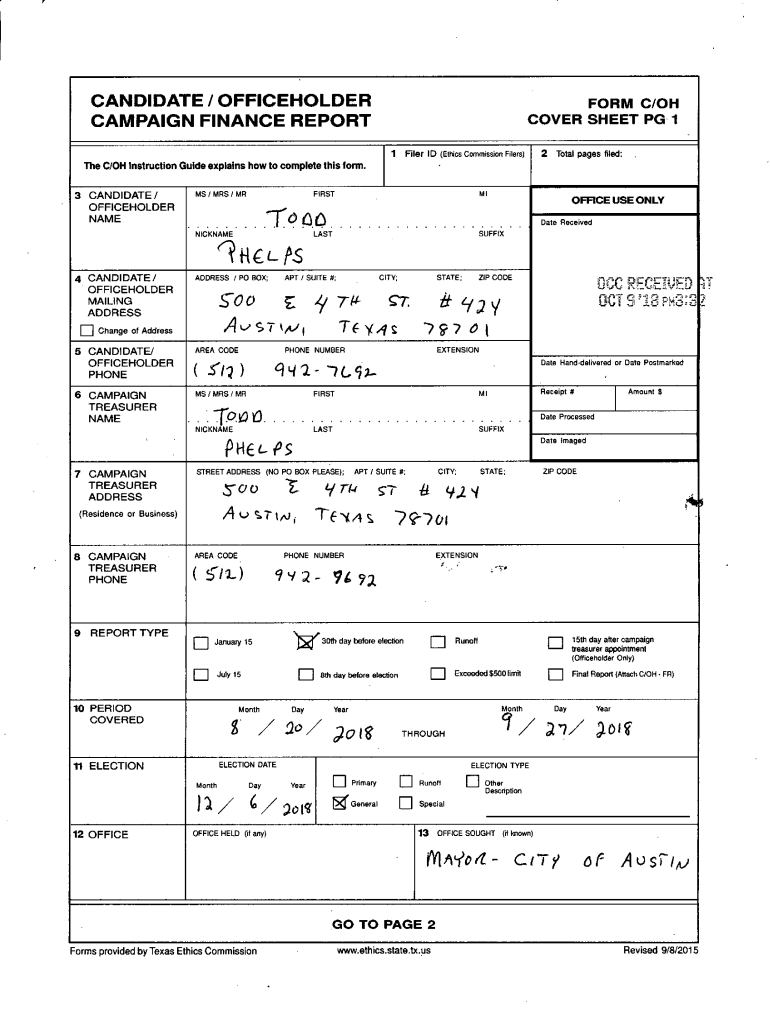 CANDIDATE / OFFICEHOLDER
CAMPAIGN FINANCE REPORT
FORM C/OH
COVER SHEET PG 1
The C/OH Instruction Guide explains how to complete this form.
1 Filer ID (Ethics Commission Filers)
2 Total pages filed:
3 CANDIDATE / OFFICEHOLDER NAME
MS / MRS / MR FIRST MI
TODD
NICKNAME LAST SUFFIX
PHELPS
OFFICE USE ONLY
Date Received
OCC RECEIVED AT
OCT 9 '18 PM3:32
4 CANDIDATE / OFFICEHOLDER MAILING ADDRESS
Change of Address
ADDRESS / PO BOX; APT / SUITE #; CITY; STATE; ZIP CODE
500 E 4TH ST. # 424
AUSTIN, TEXAS 78701
5 CANDIDATE/ OFFICEHOLDER PHONE
AREA CODE PHONE NUMBER EXTENSION
(512) 942-7692
Date Hand-delivered or Date Postmarked
6 CAMPAIGN TREASURER NAME
MS / MRS / MR FIRST MI
TODD
NICKNAME LAST SUFFIX
PHELPS
Receipt # Amount $
Date Processed
Date Imaged
7 CAMPAIGN TREASURER ADDRESS
(Residence or Business)
STREET ADDRESS (NO PO BOX PLEASE); APT / SUITE #; CITY; STATE; ZIP CODE
500 E 4TH ST # 424
AUSTIN, TEXAS 78701
8 CAMPAIGN TREASURER PHONE
AREA CODE PHONE NUMBER EXTENSION
(512) 942-9692
9 REPORT TYPE
January 15 30th day before election Runoff 15th day after campaign treasurer appointment (Officeholder Only)
July 15 8th day before election Exceeded $500 limit Final Report (Attach C/OH - FR)
10 PERIOD COVERED
Month Day Year Month Day Year
8 / 20 / 2018 THROUGH 9 / 27 / 2018
11 ELECTION
ELECTION DATE
Month Day Year
12 / 6 / 2018
ELECTION TYPE
Primary Runoff Other Description
General Special
12 OFFICE
OFFICE HELD (if any)
13 OFFICE SOUGHT (if known)
MAYOR - CITY OF AUSTIN
GO TO PAGE 2
Forms provided by Texas Ethics Commission www.ethics.state.tx.us Revised 9/8/2015